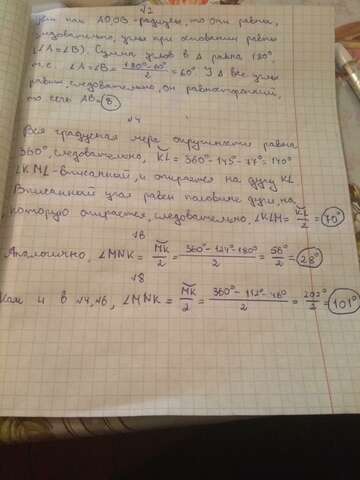 √2
так как AO, OB - радиусы, то они равны,
следовательно, углы при основании равны
(∠A=∠B). Сумма углов в Δ равна 180°,
т.е. ∠A=∠B= (180°-60°)/2 = 60°. У Δ все углы
равны, следовательно, он равносторонний,
то есть AB=8
√4
Вся градусная мера окружности равна
360°, следовательно, KL = 360°-145°-77°=140°
∠KML - вписанный, и опирается на дугу KL
Вписанный угол равен половине дуги, на
которую опирается, следовательно, ∠KLM= KL/2 = 70°
√6
Аналогично, ∠MNK = MK/2 = (360°-124°-180°)/2 = 56°/2 = 28°
√8
Как и в √4, √6, ∠MNK = MK/2 = (360°-112°-46°)/2 = 202°/2 = 101°